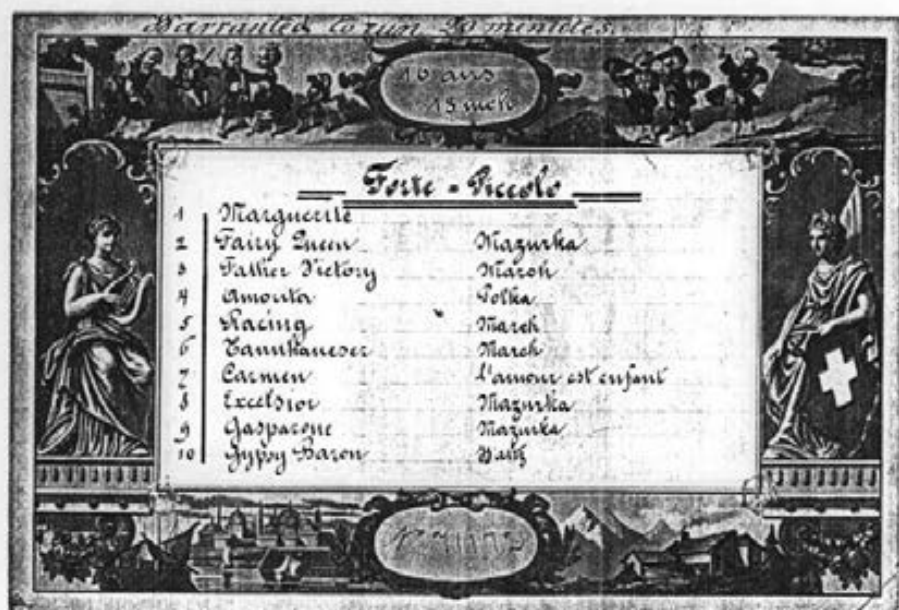 Warranted to run 20 minutes.
10 airs
13 inch
Forte = Piccolo
1 Marguerite
2 Fairy Queen Mazurka
3 Father Victory March
4 Amorita Polka
5 Racing March
6 Tannhaueser March
7 Carmen L'amour est enfant
8 Excelsior Mazurka
9 Gasparone Mazurka
10 Gypsy Baron Waltz